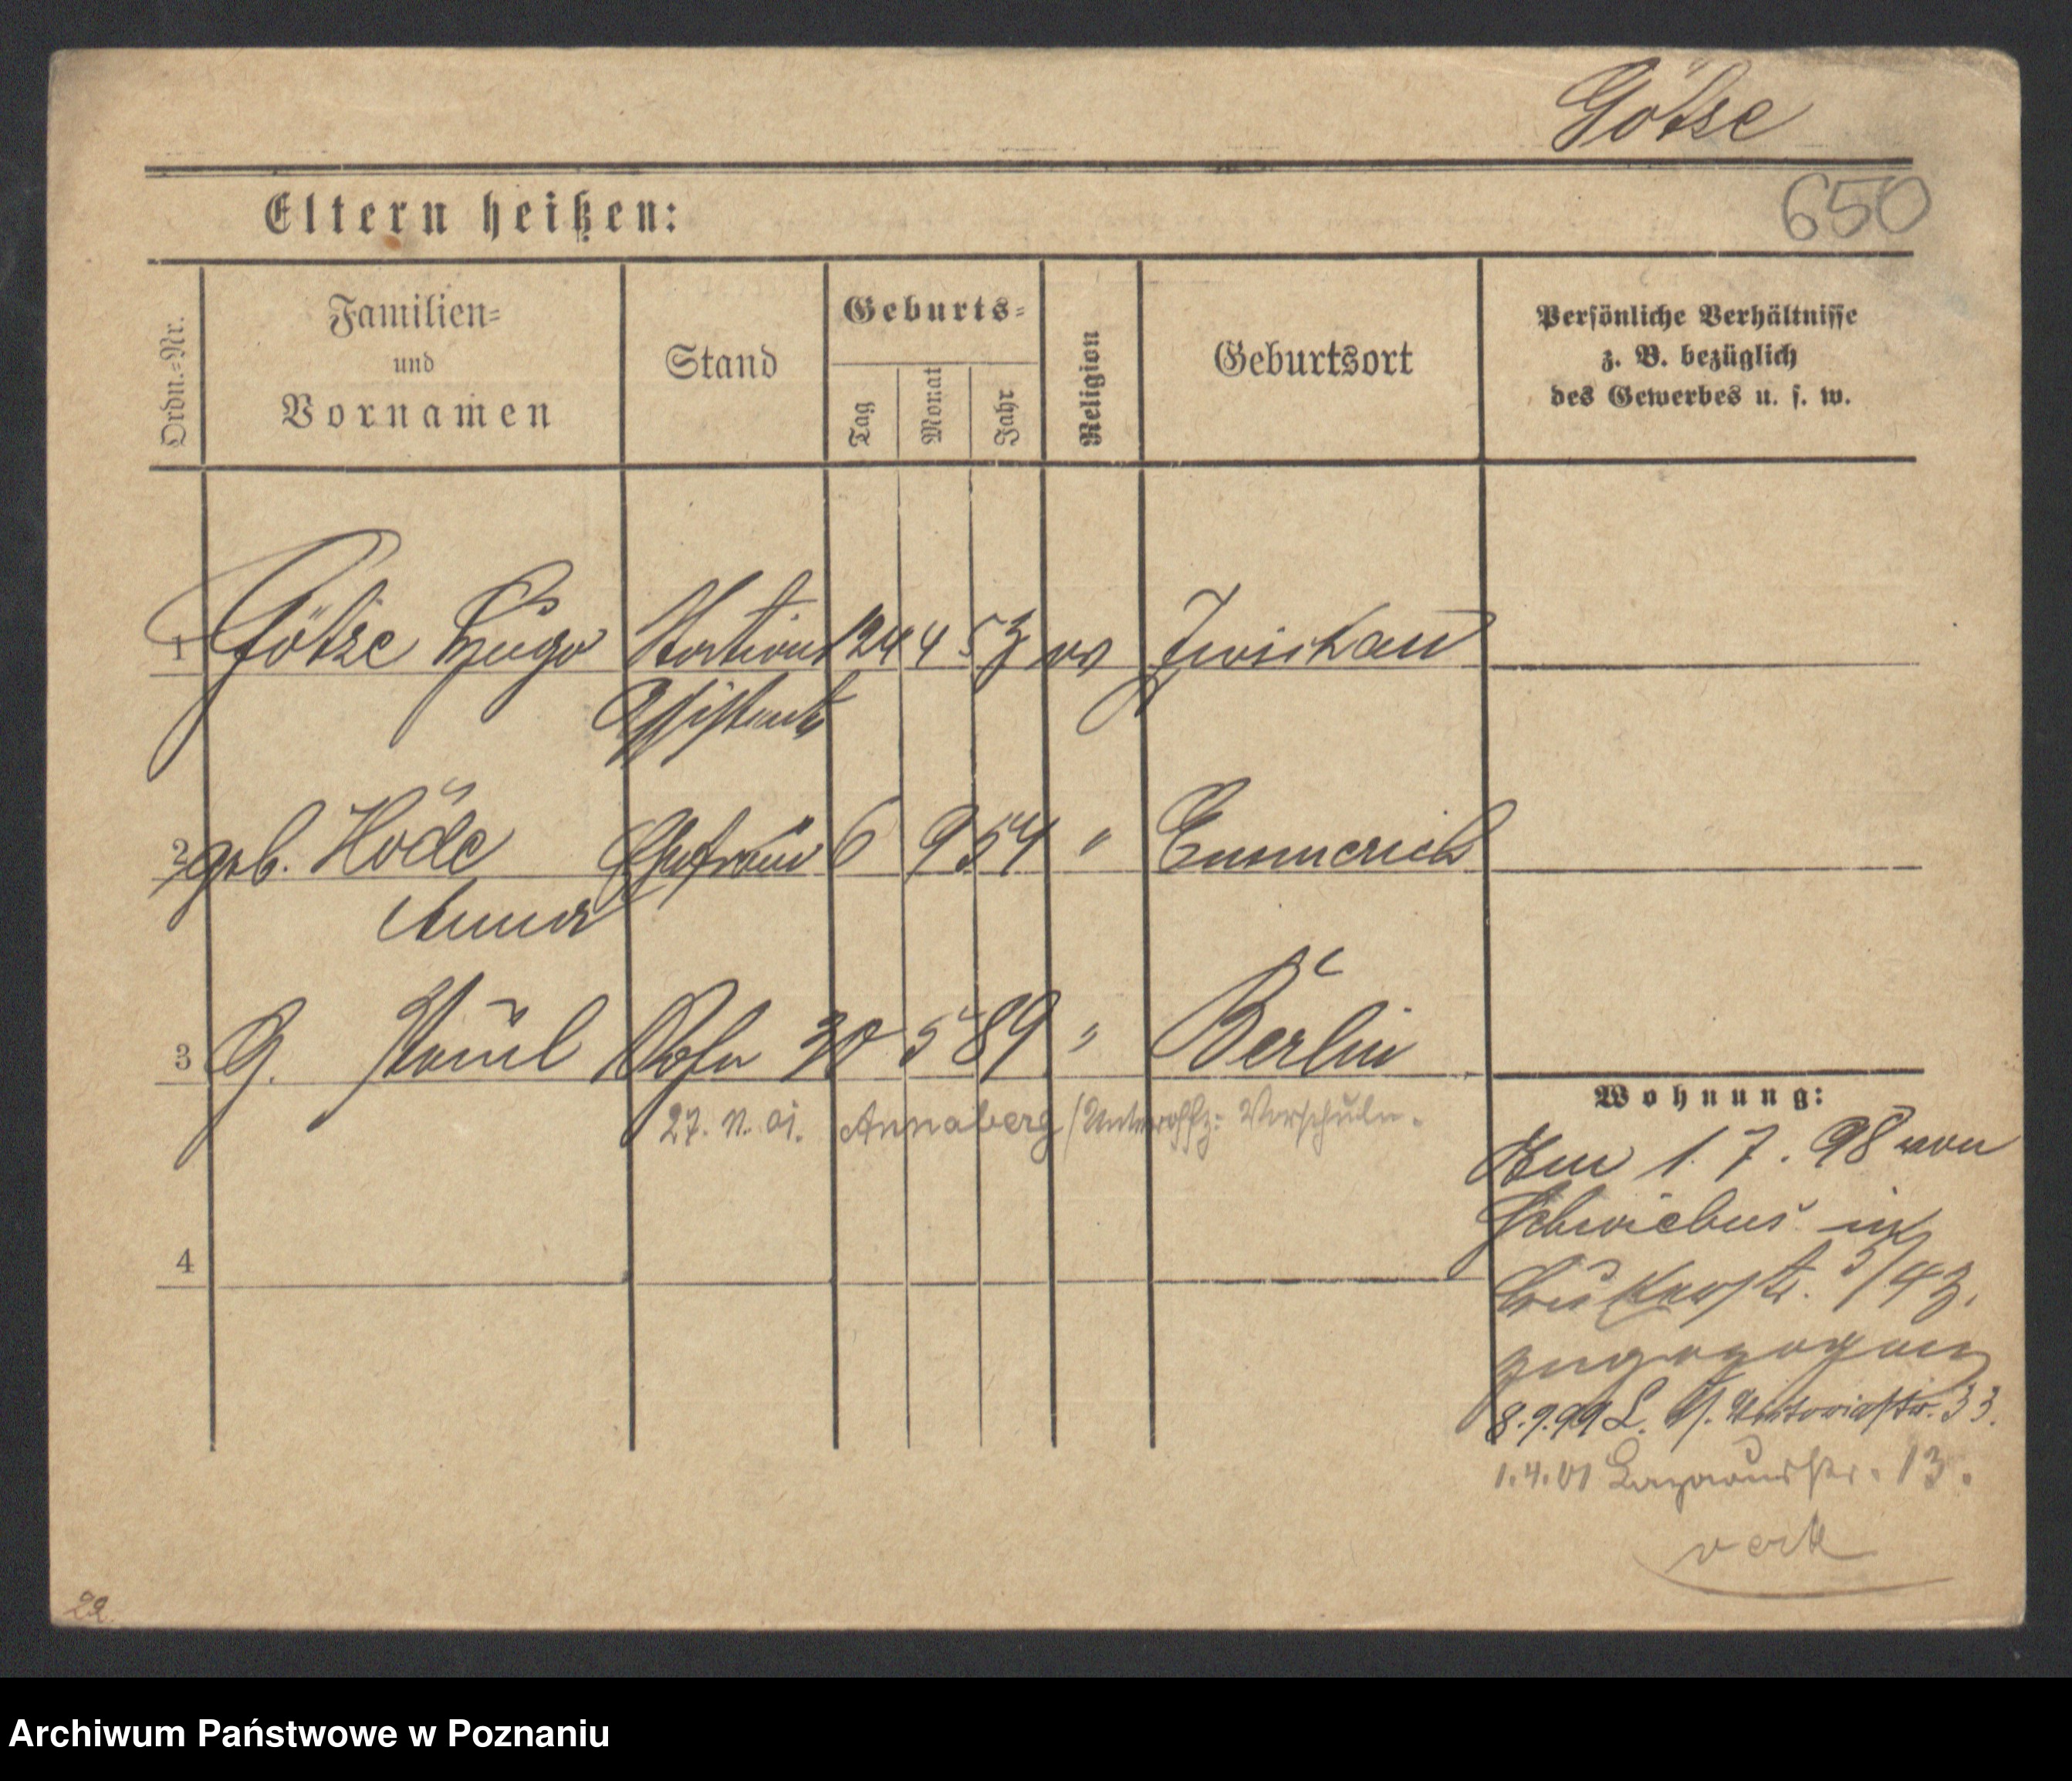 Götze
650
Eltern heißen:
Ordn.-Nr.
Familien-
und
Vornamen
Stand
Geburts-
Tag
Monat
Jahr
Religion
Geburtsort
Persönliche Verhältnisse
z. B. bezüglich
des Gewerbes u. s. w.
1 Götze Hugo Stations 12 4 53 ev Zwickau
Assistent
2 geb. Höde Ehefrau 6 9 54 " Emmerich
Anna
3 G. Paul Sohn 30 5 89 " Berlin
27. 11. 01. Annaberg / Unteroffz: Vorschule.
4
Wohnung:
Am 1. 7. 98 von
Schwiebus in
5/43.
zugezogen
8.9.99 L. Viktoriastr. 33.
1.4.01 Lazarusstr. 13.
22
Archiwum Państwowe w Poznaniu